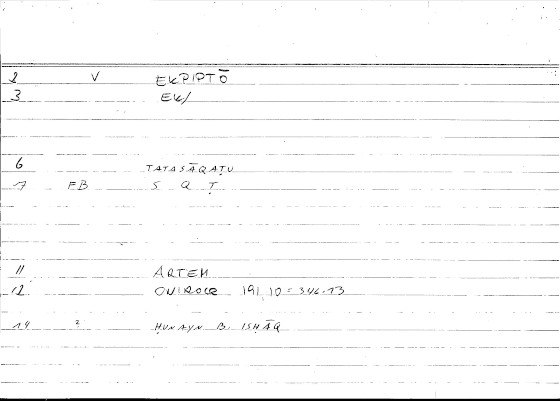 2 V EKPIPTŌ
3 EK/
6 TATASĀQAṬU
7 FB S Q Ṭ
11 ARTEM
12 ONIROCR 191,10 = 346.13
14 2 ḤUNAYN B. ISḤĀQ